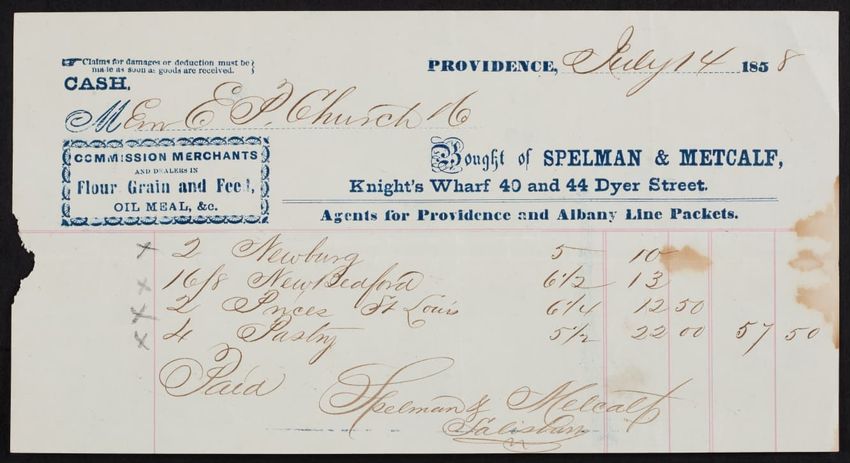 Claims for damages or deduction must be
made as soon as goods are received.
CASH.
PROVIDENCE, July 14 1858
M E. P. Church
COMMISSION MERCHANTS
AND DEALERS IN
Flour, Grain and Feed,
OIL MEAL, &c.
Bought of SPELMAN & METCALF,
Knight's Wharf 40 and 44 Dyer Street.
Agents for Providence and Albany Line Packets.
x 2 Newburg 5 10
x New Bedford 6 1/2 13
x 2 Prices St Louis 6 1/4 12 50
x 4 Pastry 5 1/2 22 00 57 50
Paid
Spelman & Metcalf